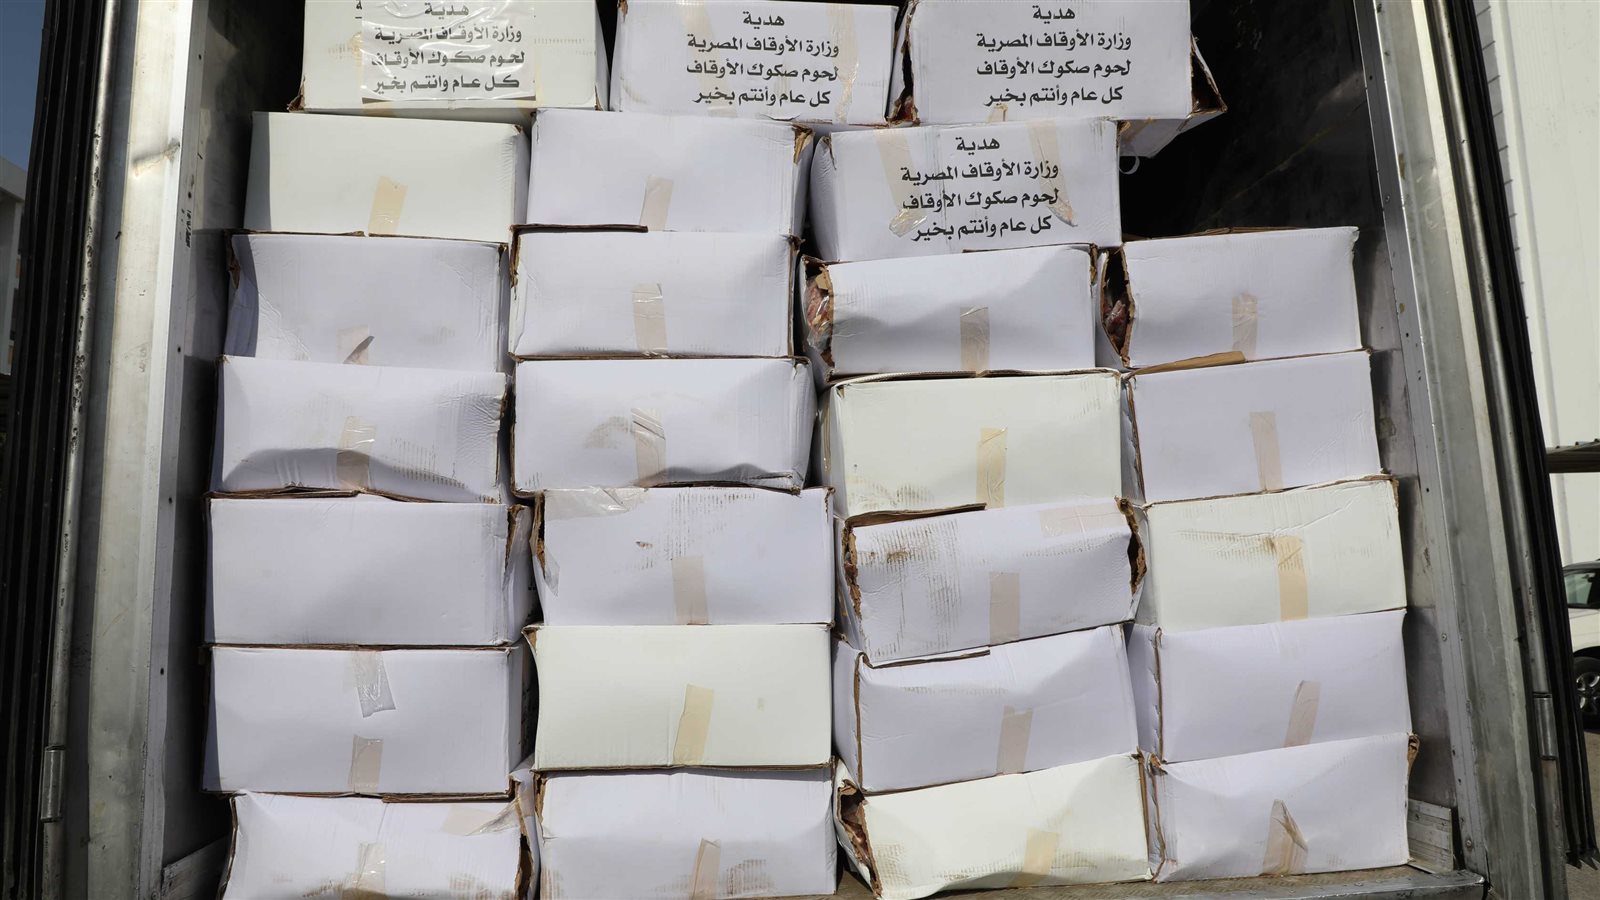 هدية
وزارة الأوقاف المصرية
لحوم صكوك الأوقاف
كل عام وانتم بخير
هدية
وزارة الأوقاف المصرية
لحوم صكوك الأوقاف
كل عام وأنتم بخير
هدية
وزارة الأوقاف المصرية
لحوم صكوك الأوقاف
كل عام وأنتم بخير
هدية
وزارة الأوقاف المصرية
لحوم صكوك الأوقاف
كل عام وأنتم بخير